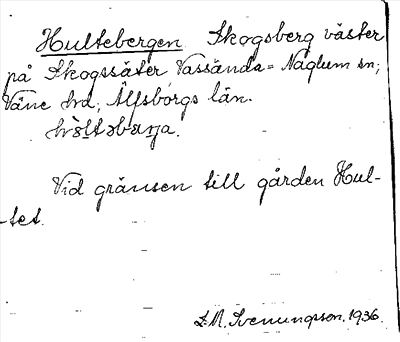 Hultebergen Skogsberg väster
på Skogssäter Vassända-Naglum sn;
Väne hd, Älfsborgs län.
Vid gränsen till gården Hul-
-tet.
L.M. Svenungsson. 1936.